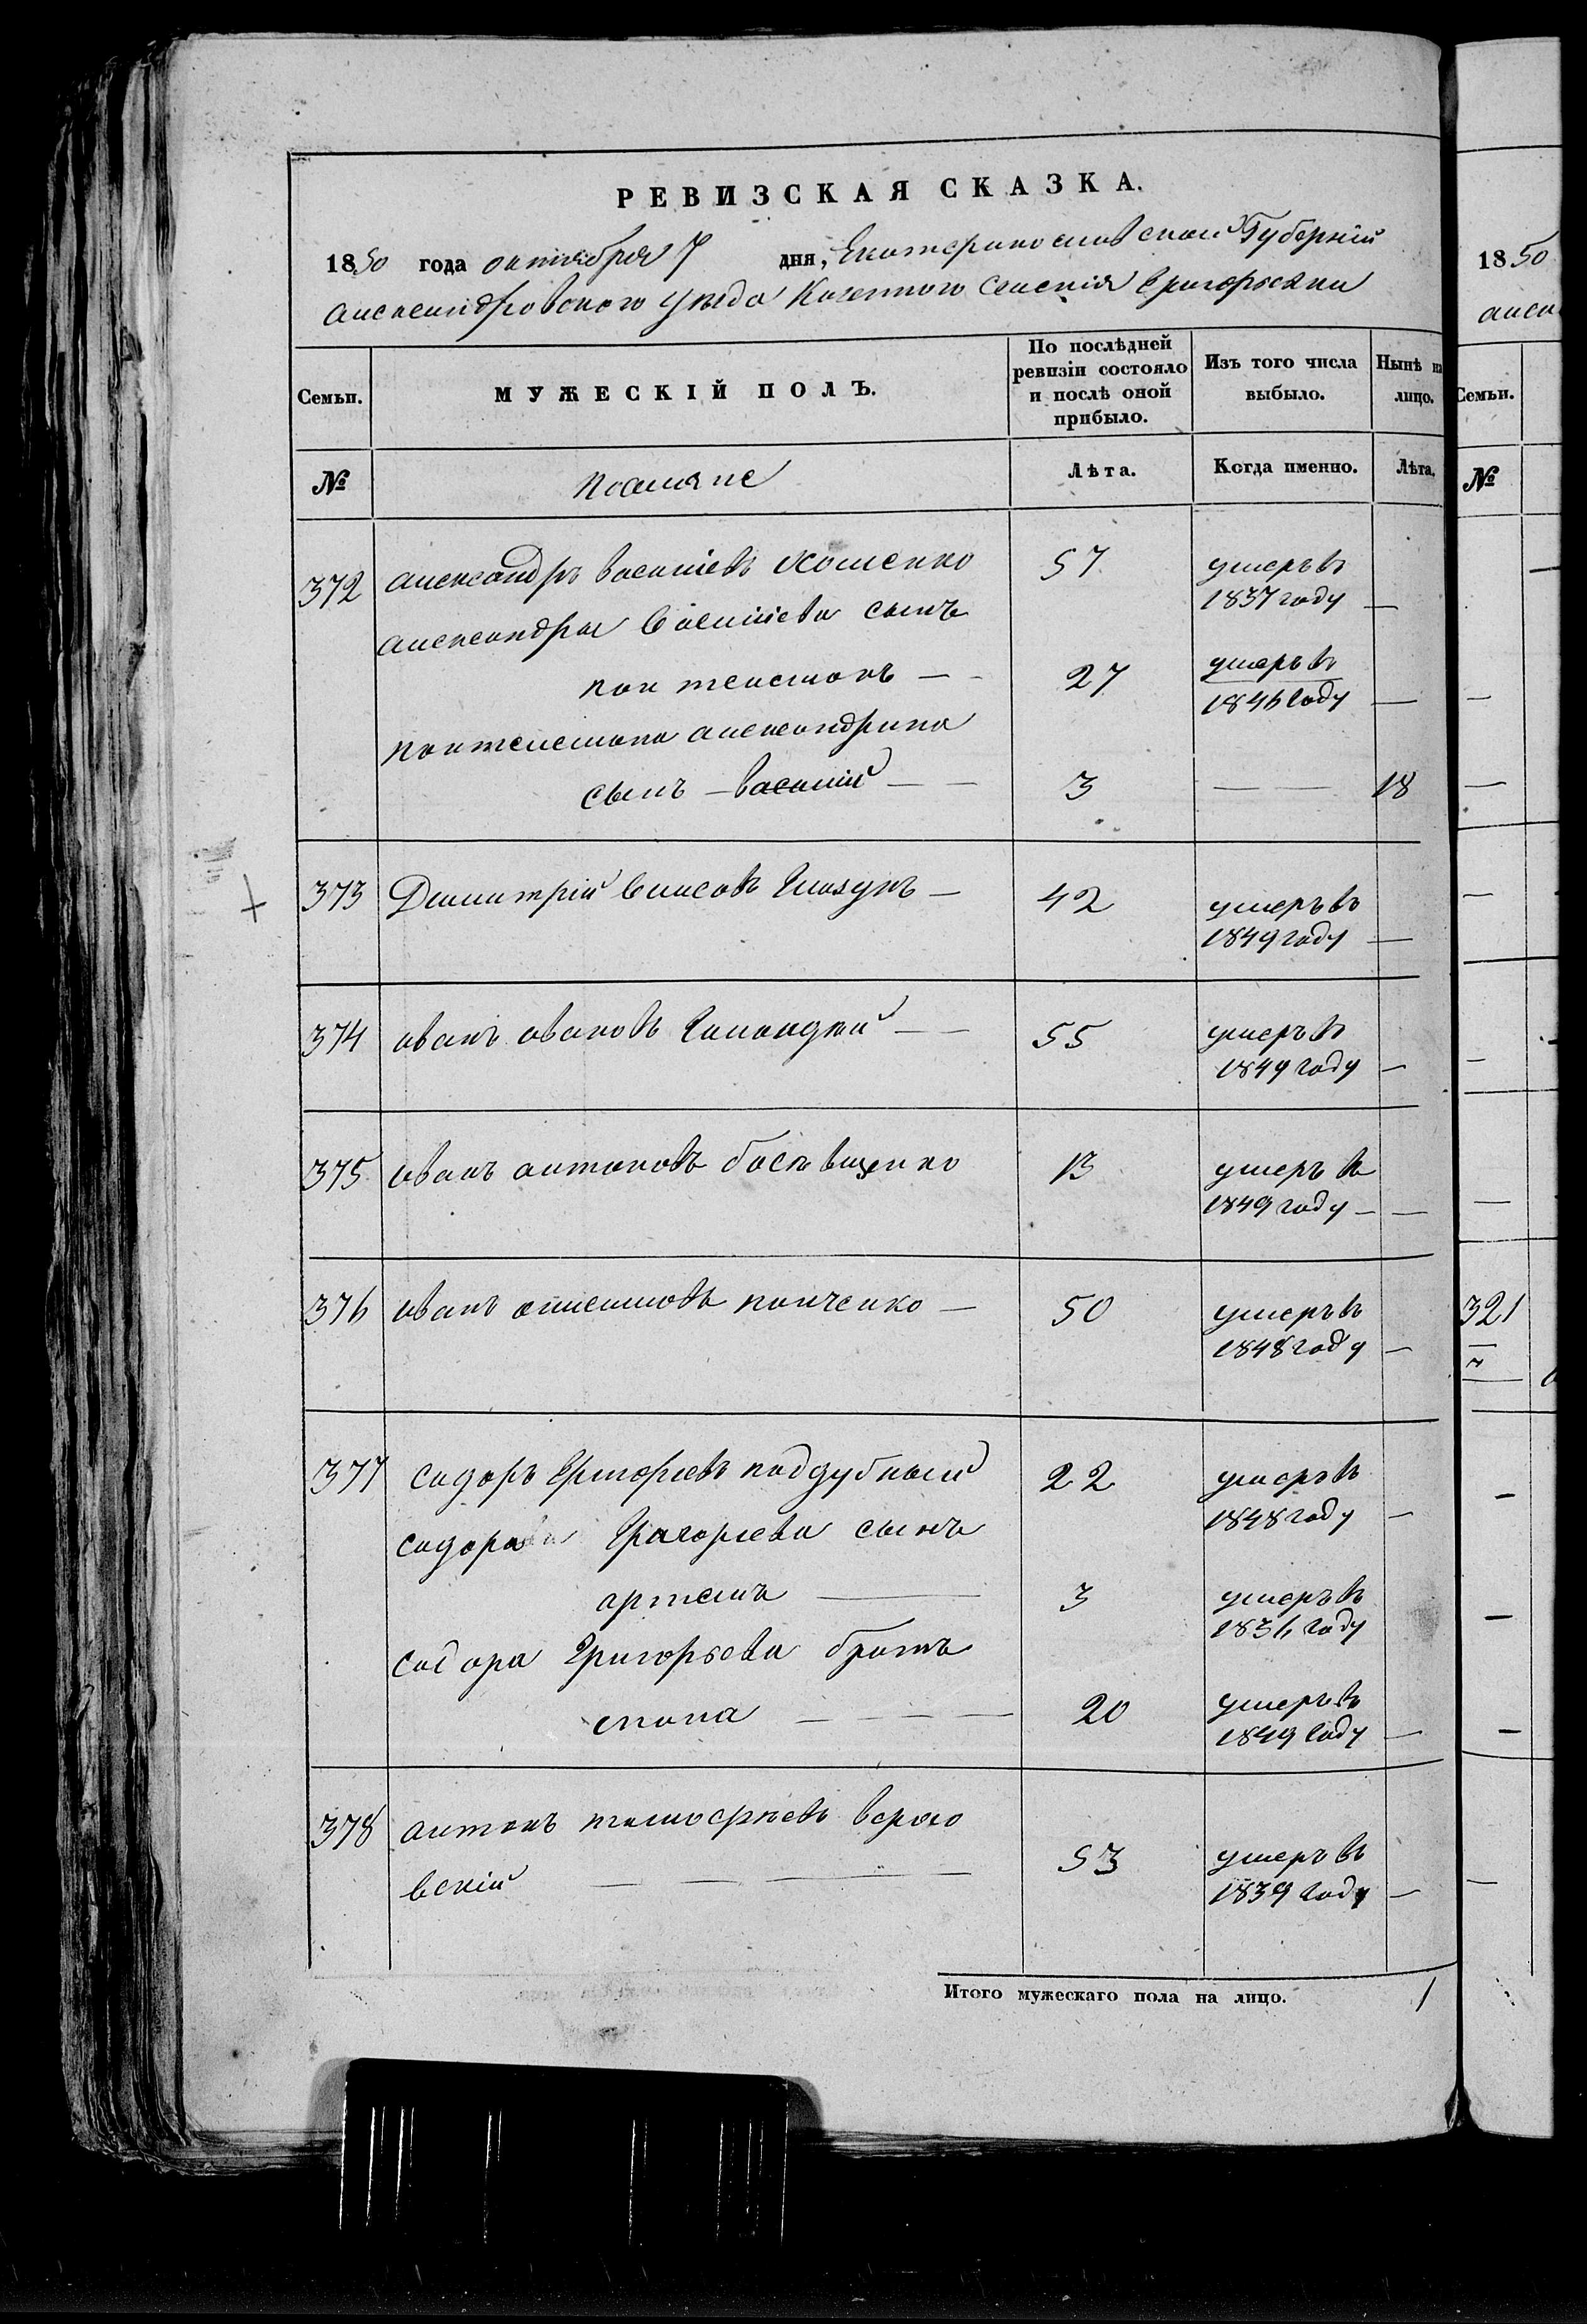 РЕВИЗСКАЯ СКАЗКА.
1850 года октября 7 дня, Екатеринославской Губерніи
александровского уезда Казенного селенія Григорьевки
Семьи. МУЖЕСКІЙ ПОЛЪ. По послѣдней ревизіи состояло и послѣ оной прибыло. Изъ того числа выбыло. Нынѣ на лицо.
№ поселяне Лѣта. Когда именно. Лѣта.
372 александръ васильевъ 57 умеръ въ
1837 году —
александра Васильева сынъ
пантелемонъ — 27 умеръ въ
1846 году —
пантелемона александрина
сынъ — василій — 3 — — 18
373 Димитрій власовъ Глазунъ — 42 умеръ въ
1849 году —
374 иванъ ивановъ — 55 умеръ въ
1849 году —
375 иванъ антоновъ 13 умеръ въ
1849 году —
376 иванъ панченко — 50 умеръ въ
1848 году —
377 сидоръ Григорьевъ поддубный 22 умеръ въ
1848 году —
сидора Григорьева сынъ
артемъ — 3 умеръ въ
1836 году
сидора Григорьева братъ
20 умеръ въ
1849 году —
378 антонъ тимофѣевъ
вскій — 53 умеръ въ
1839 году —
Итого мужескаго пола на лицо. 1
1850
Семьи.
№
321